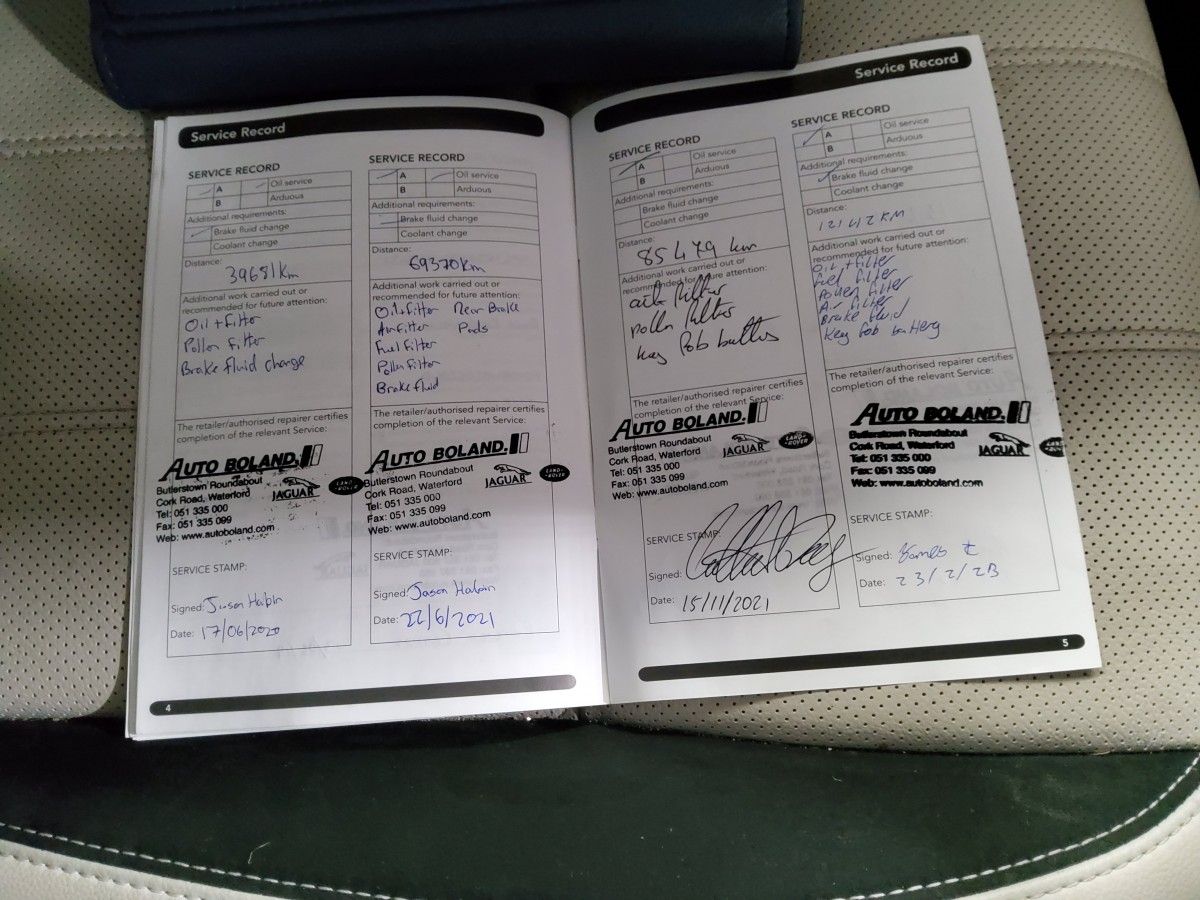 Service Record
SERVICE RECORD
A Oil service
B Arduous
Additional requirements:
Brake fluid change
Coolant change
Distance:
39651km
Additional work carried out or
recommended for future attention:
Oil + filter
Pollen filter
Brake fluid change
The retailer/authorised repairer certifies
completion of the relevant Service:
AUTO BOLAND.
Butlerstown Roundabout
Cork Road, Waterford
Tel: 051 335 000
Fax: 051 335 099
Web: www.autoboland.com
JAGUAR
LAND-ROVER
SERVICE STAMP:
Signed: Jason Halpin
Date: 17/06/2020
4
SERVICE RECORD
A Oil service
B Arduous
Additional requirements:
Brake fluid change
Coolant change
Distance:
69370km
Additional work carried out or
recommended for future attention:
Oil+filter Rear Brake
Air filter Pads
Fuel filter
Pollen filter
Brake fluid
The retailer/authorised repairer certifies
completion of the relevant Service:
AUTO BOLAND.
Butlerstown Roundabout
Cork Road, Waterford
Tel: 051 335 000
Fax: 051 335 099
Web: www.autoboland.com
JAGUAR
LAND-ROVER
SERVICE STAMP:
Signed: Jason Halpin
Date: 22/6/2021
Service Record
SERVICE RECORD
A Oil service
B Arduous
Additional requirements:
Brake fluid change
Coolant change
Distance:
85479 km
Additional work carried out or
recommended for future attention:
pollen filter
key fob battery
The retailer/authorised repairer certifies
completion of the relevant Service:
AUTO BOLAND.
Butlerstown Roundabout
Cork Road, Waterford
Tel: 051 335 000
Fax: 051 335 099
Web: www.autoboland.com
JAGUAR
LAND-ROVER
SERVICE STAMP:
Signed:
Date: 15/11/2021
SERVICE RECORD
A Oil service
B Arduous
Additional requirements:
Brake fluid change
Coolant change
Distance:
12142 KM
Additional work carried out or
recommended for future attention:
Oil + filter
Fuel filter
Pollen filter
Air filter
Brake fluid
Key fob battery
The retailer/authorised repairer certifies
completion of the relevant Service:
AUTO BOLAND.
Butlerstown Roundabout
Cork Road, Waterford
Tel: 051 335 000
Fax: 051 335 099
Web: www.autoboland.com
JAGUAR
SERVICE STAMP:
Signed:
Date: 23/2/23
5